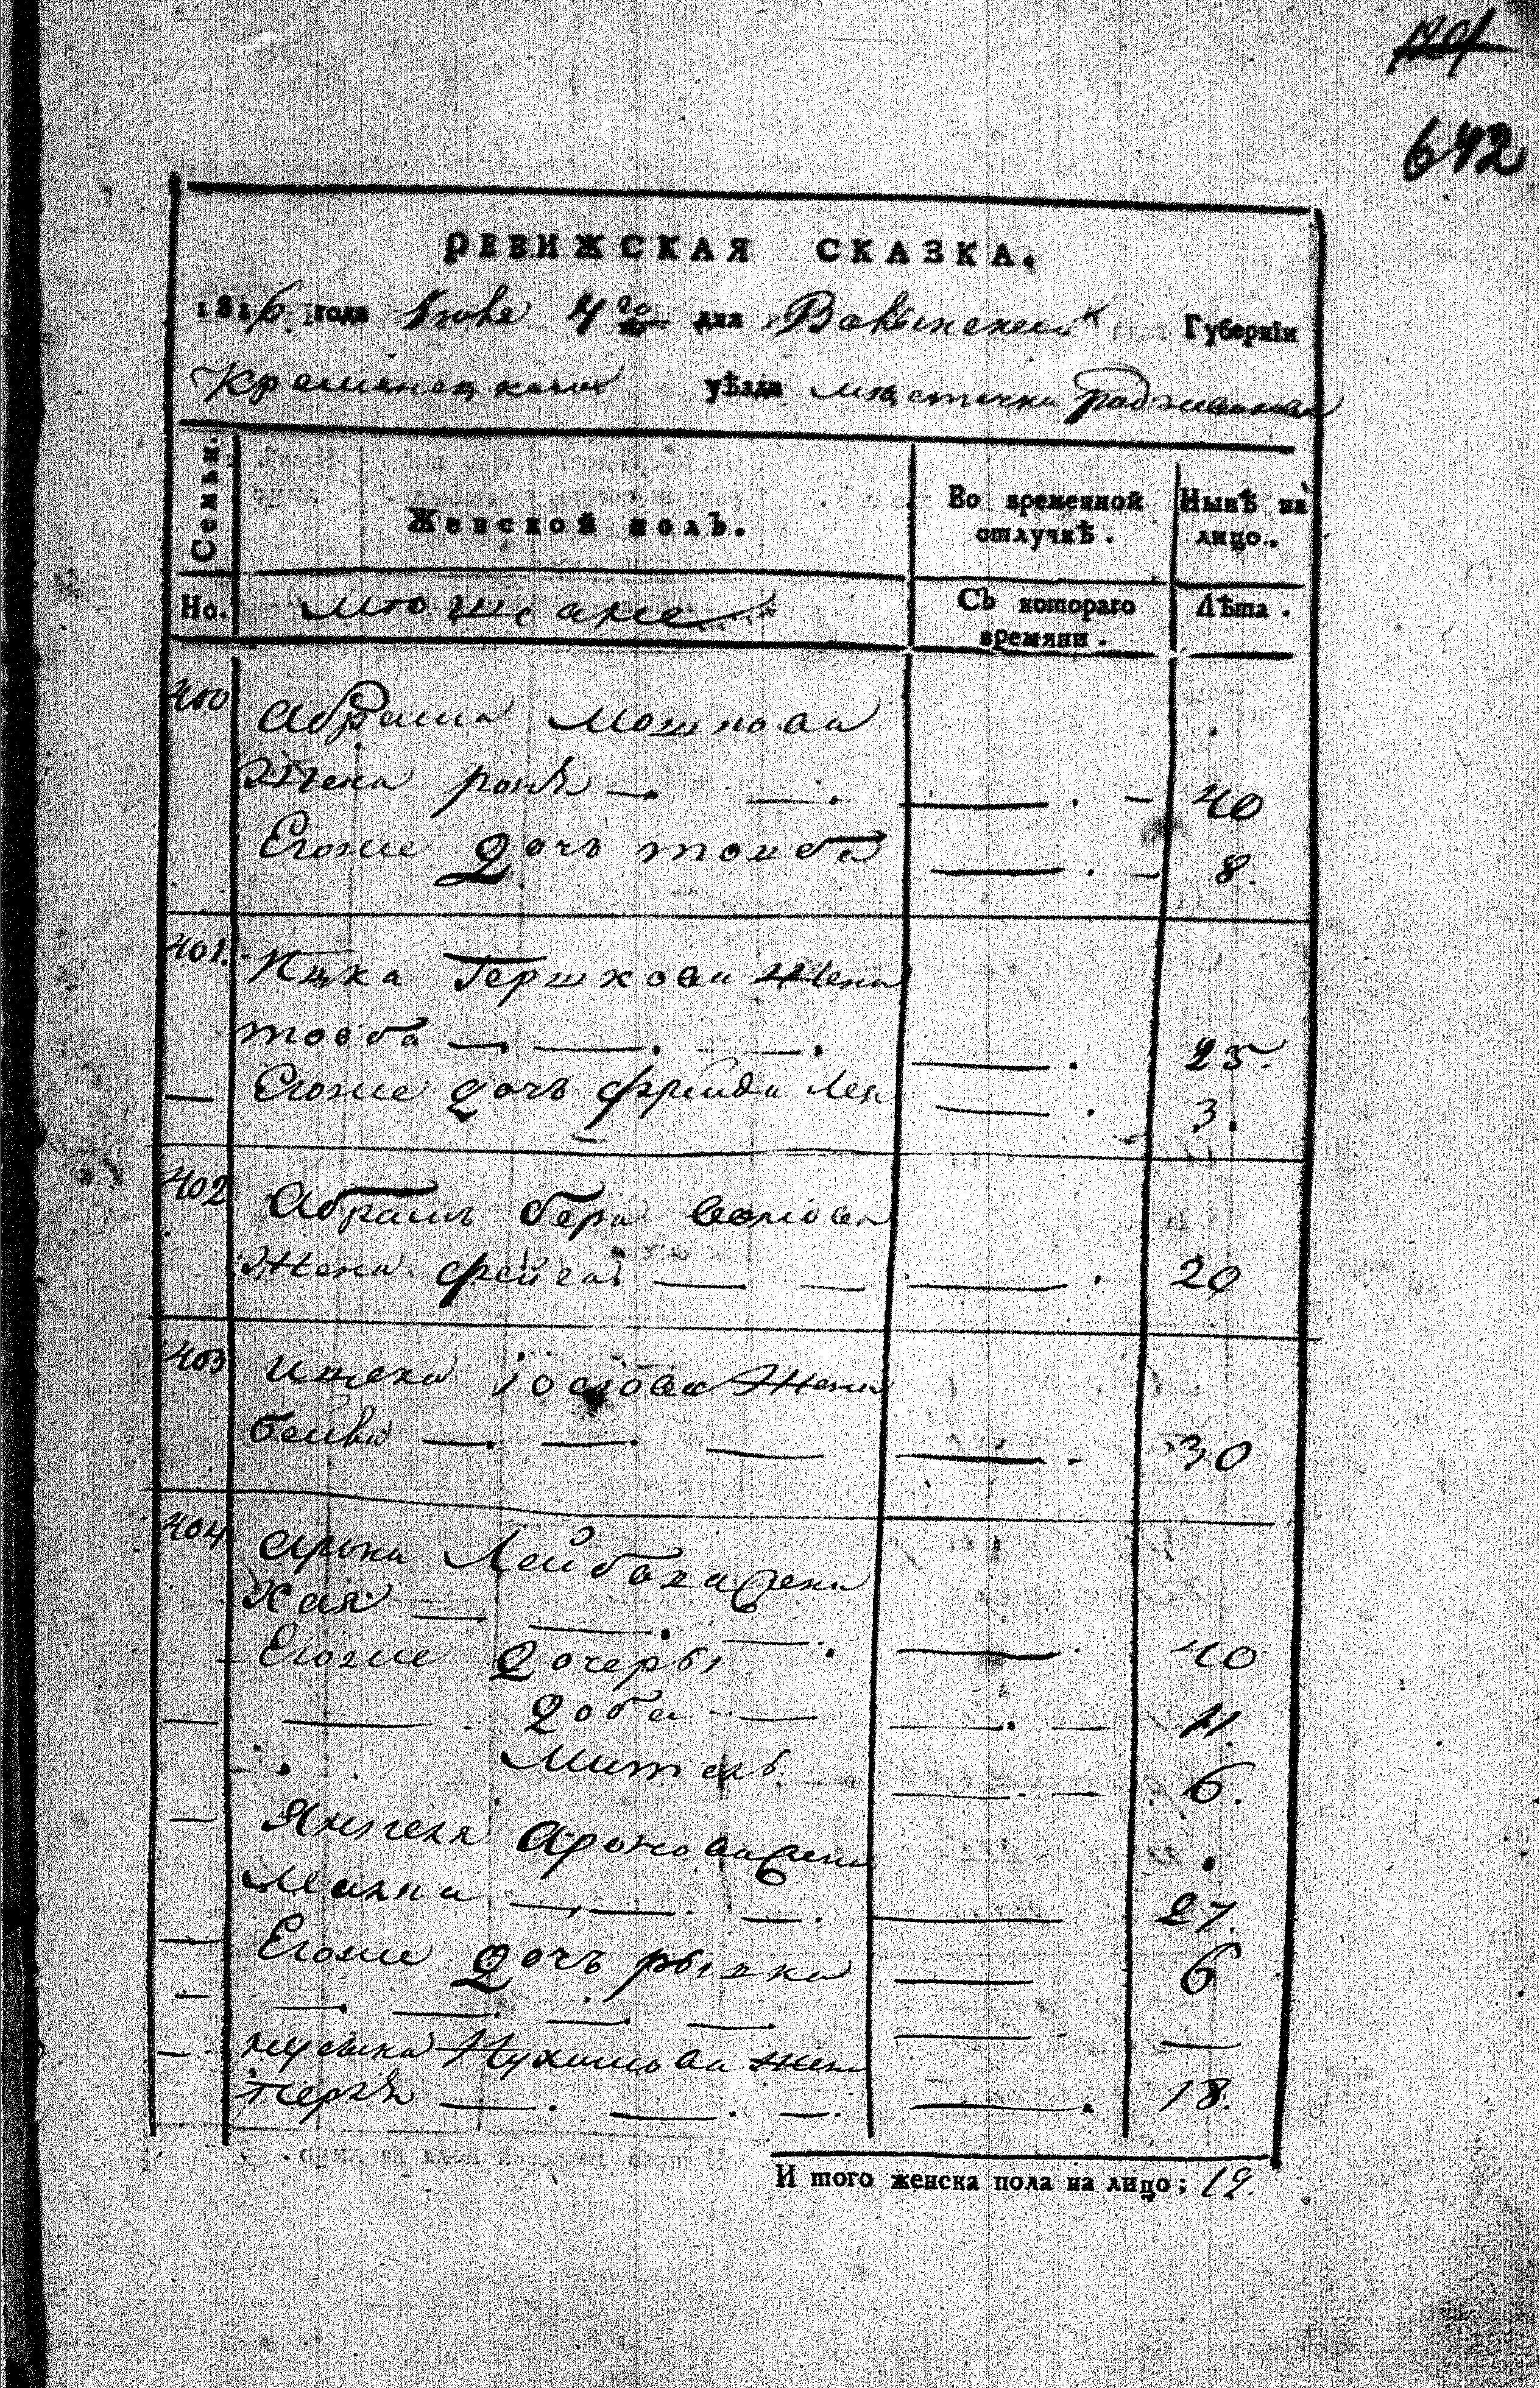 1201
642
РЕВИЖСКАЯ СКАЗКА.
1816 года Июня 4го дня Волынской Губернїи
Кременецкаго уѣзда местечка Радзивилова
Семьи. Женской полъ. Во временной отлучкѣ. Нынѣ на лицо.
Но. Съ котораго времяни. Лѣта.
400 Абрама Мошкова
Жена роня — — — 40
Егоже Дочь тоиба — 8.
401. Ицка Гершкова Жена
товба — — — — 25.
— Егоже дочь фрейда Лея — 3.
402 Абрамъ бера
Жена фейга — — — 20
403 ицка іосіова Жена
бейла — — — — 30
404 арона Лейбова жена
Хая — — — — 40
Егоже Дочеры
— — Доба — — — 11.
Митель — — 6.
— Янкеля Аронова жена
Малка — — — — 27.
— Егоже Дочь рывка — 6
— — — — — — —
— Нухимова жена
перля — — — — 18.
И того женска пола на лицо; 12.